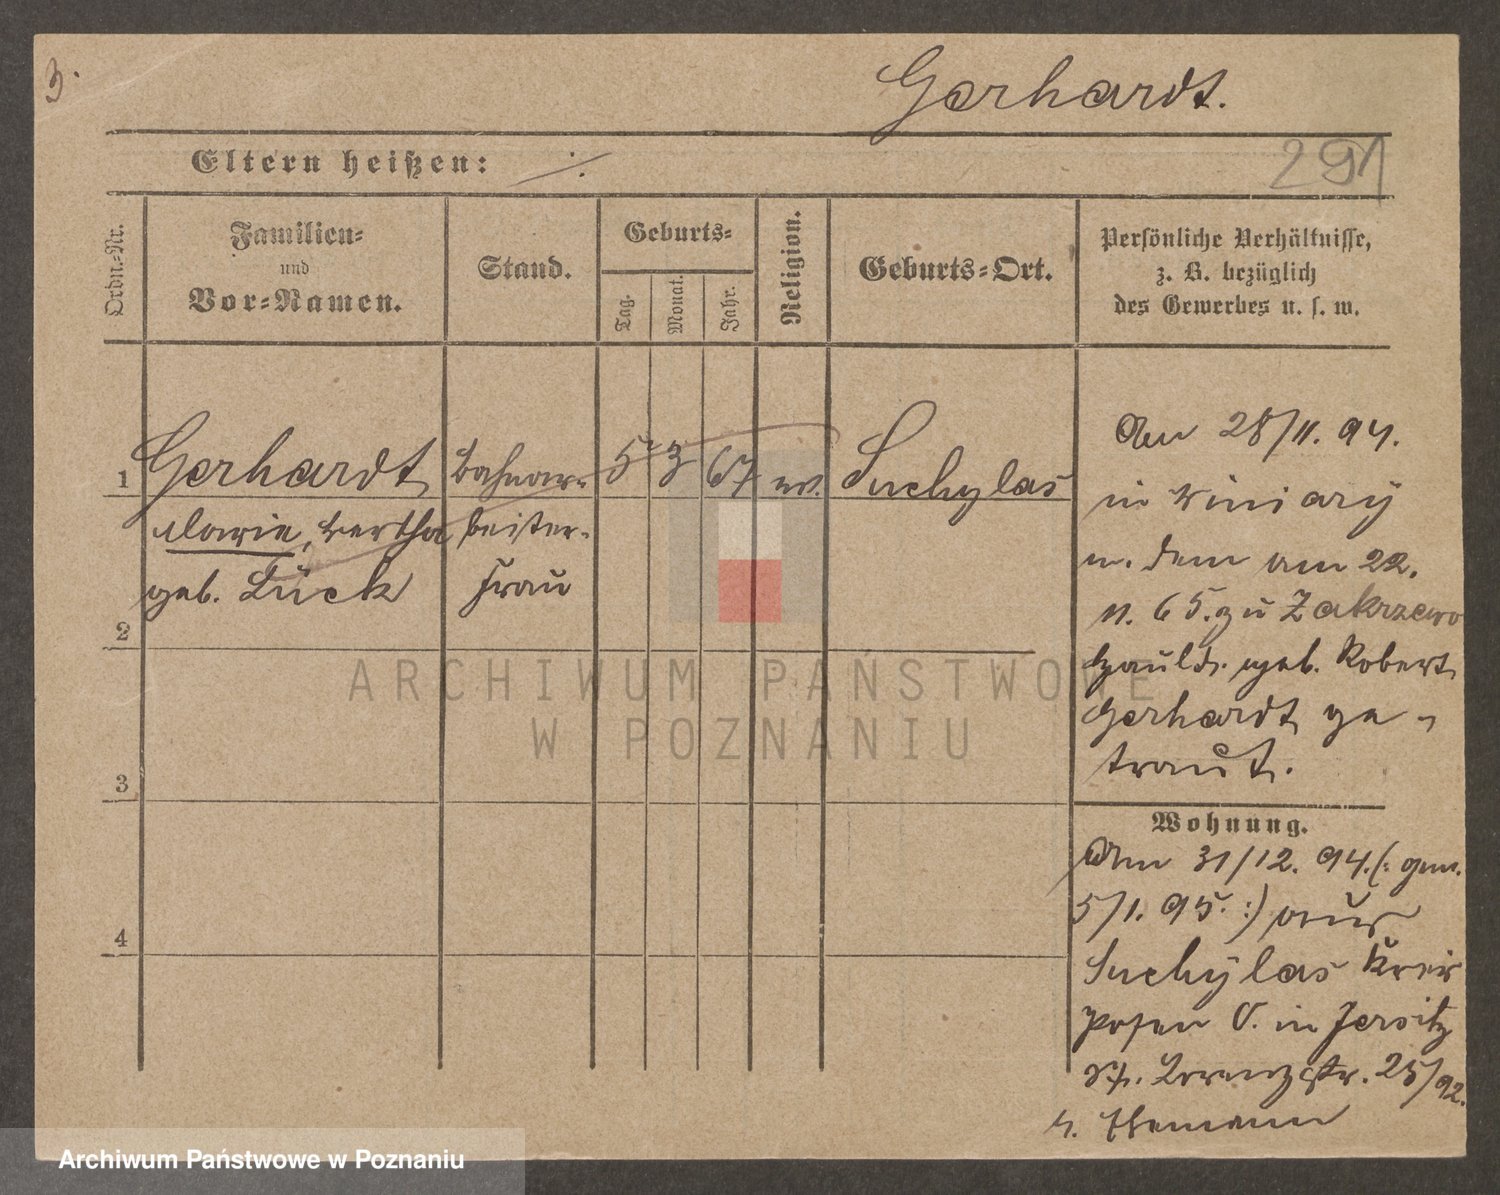 3.
Gerhardt.
Eltern heißen: ·/.
291
Ordn.-Nr.
Familien-
und
Vor-Namen.
Stand.
Geburts-
Tag.
Monat.
Jahr.
Religion.
Geburts-Ort.
Persönliche Verhältnisse,
z. B. bezüglich
des Gewerbes u. s. w.
1 Gerhardt Bahnar- 5 3 67 ev. Suchylas
Marie, Bertha beiter-
geb. Lück Frau
2
3
4
Den 28/11. 94.
in Winiary
m. dem am 22.
11. 65. zu Zakrzewo
geb. Robert
Gerhardt ge-
traut.
Wohnung.
Am 31/12. 94. (: gem.
5/1. 95. :) aus
Suchylas Kreis
Posen O. in Jersitz
St. Lorenzstr. 25/92.
b. Ehemann
ARCHIWUM PAŃSTWOWE
W POZNANIU
Archiwum Państwowe w Poznaniu